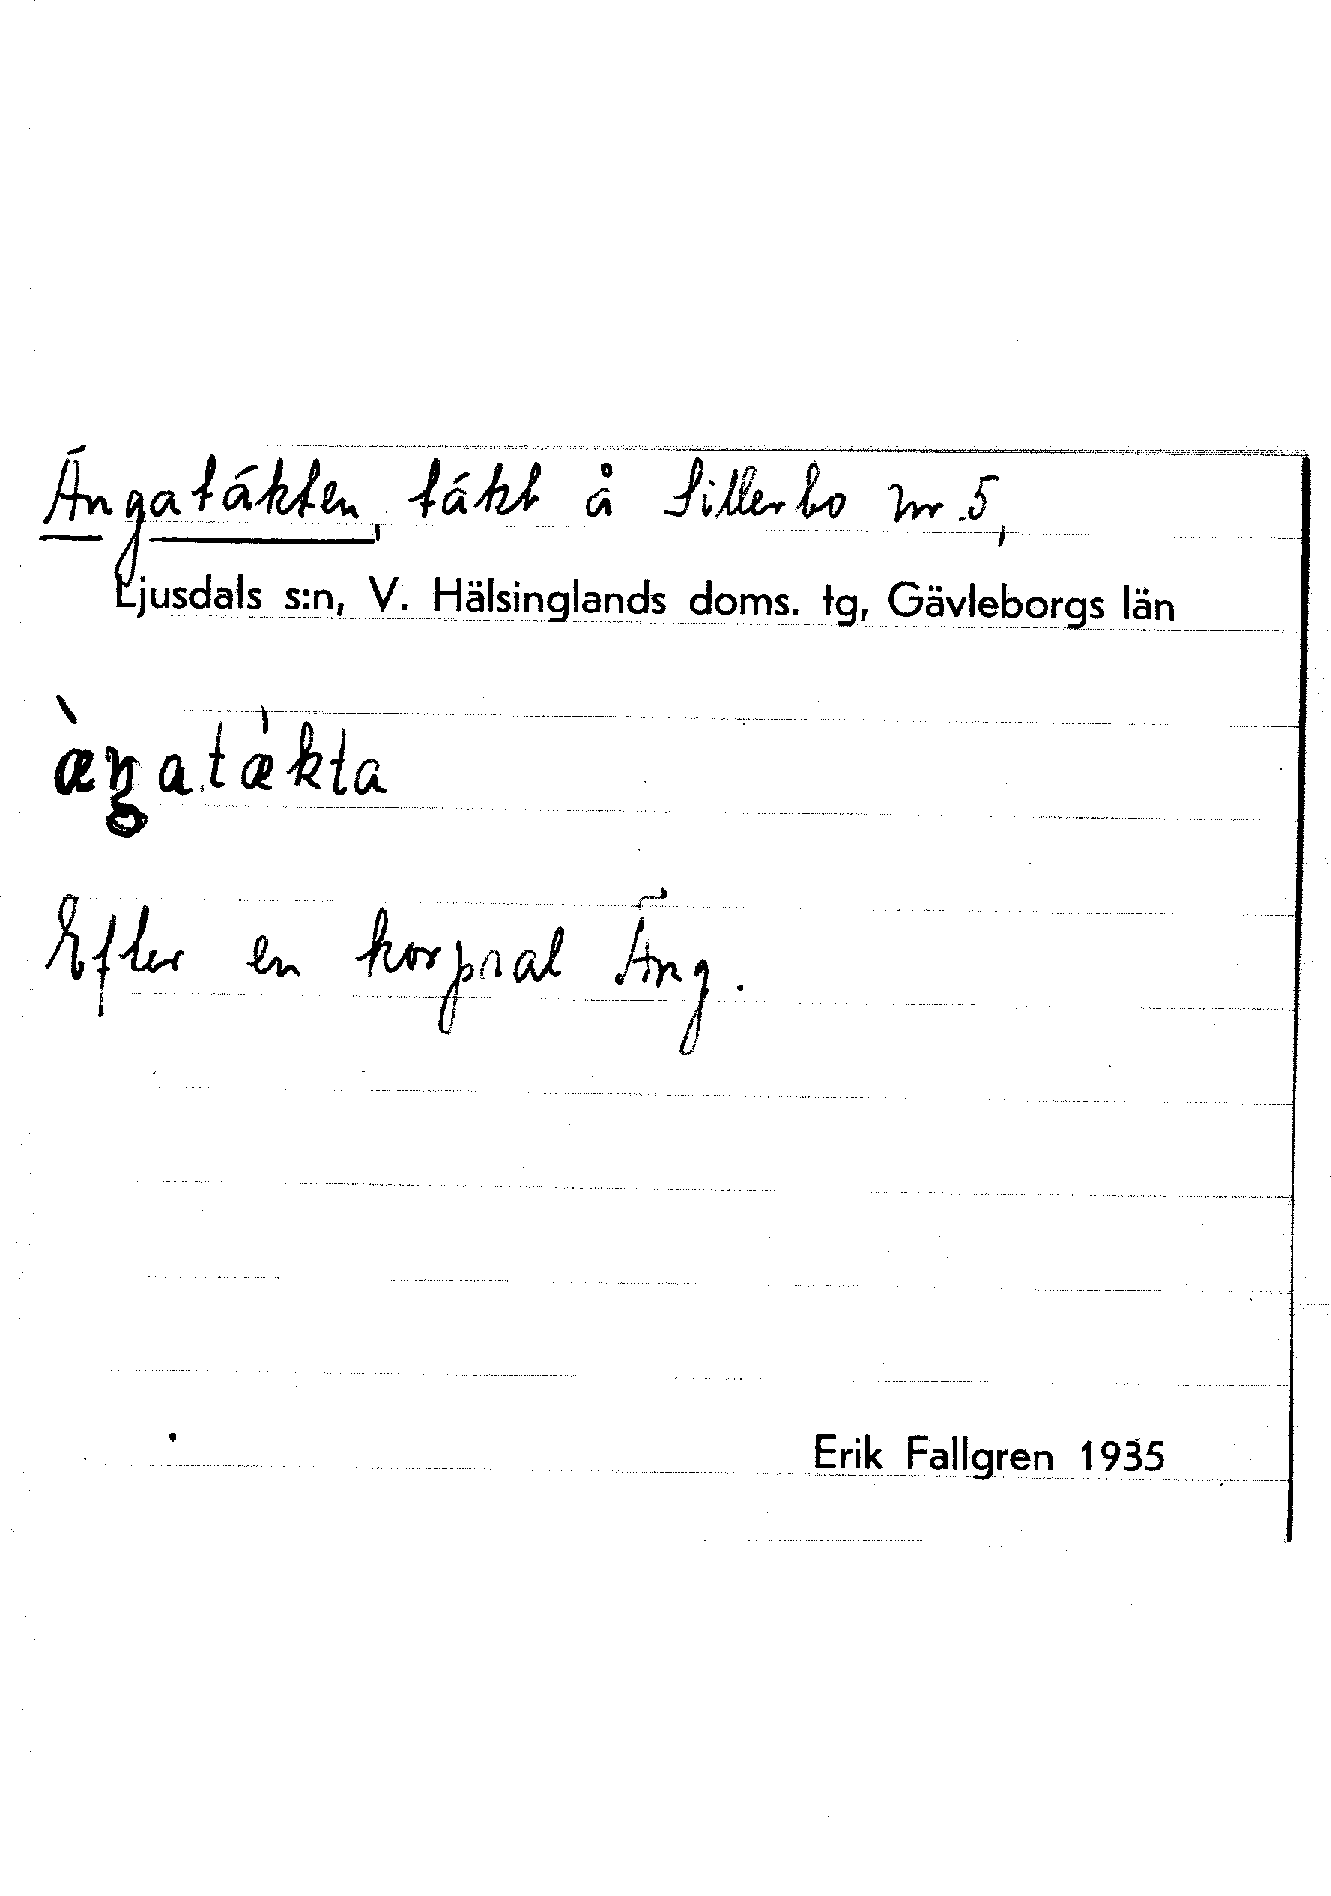 Ängatäkten, täkt å Sillerbo nr 5,
Ljusdals s:n, V. Hälsinglands doms. tg, Gävleborgs län
æ̀ŋatæ̀kta
Efter en korpral Äng.
Erik Fallgren 1935